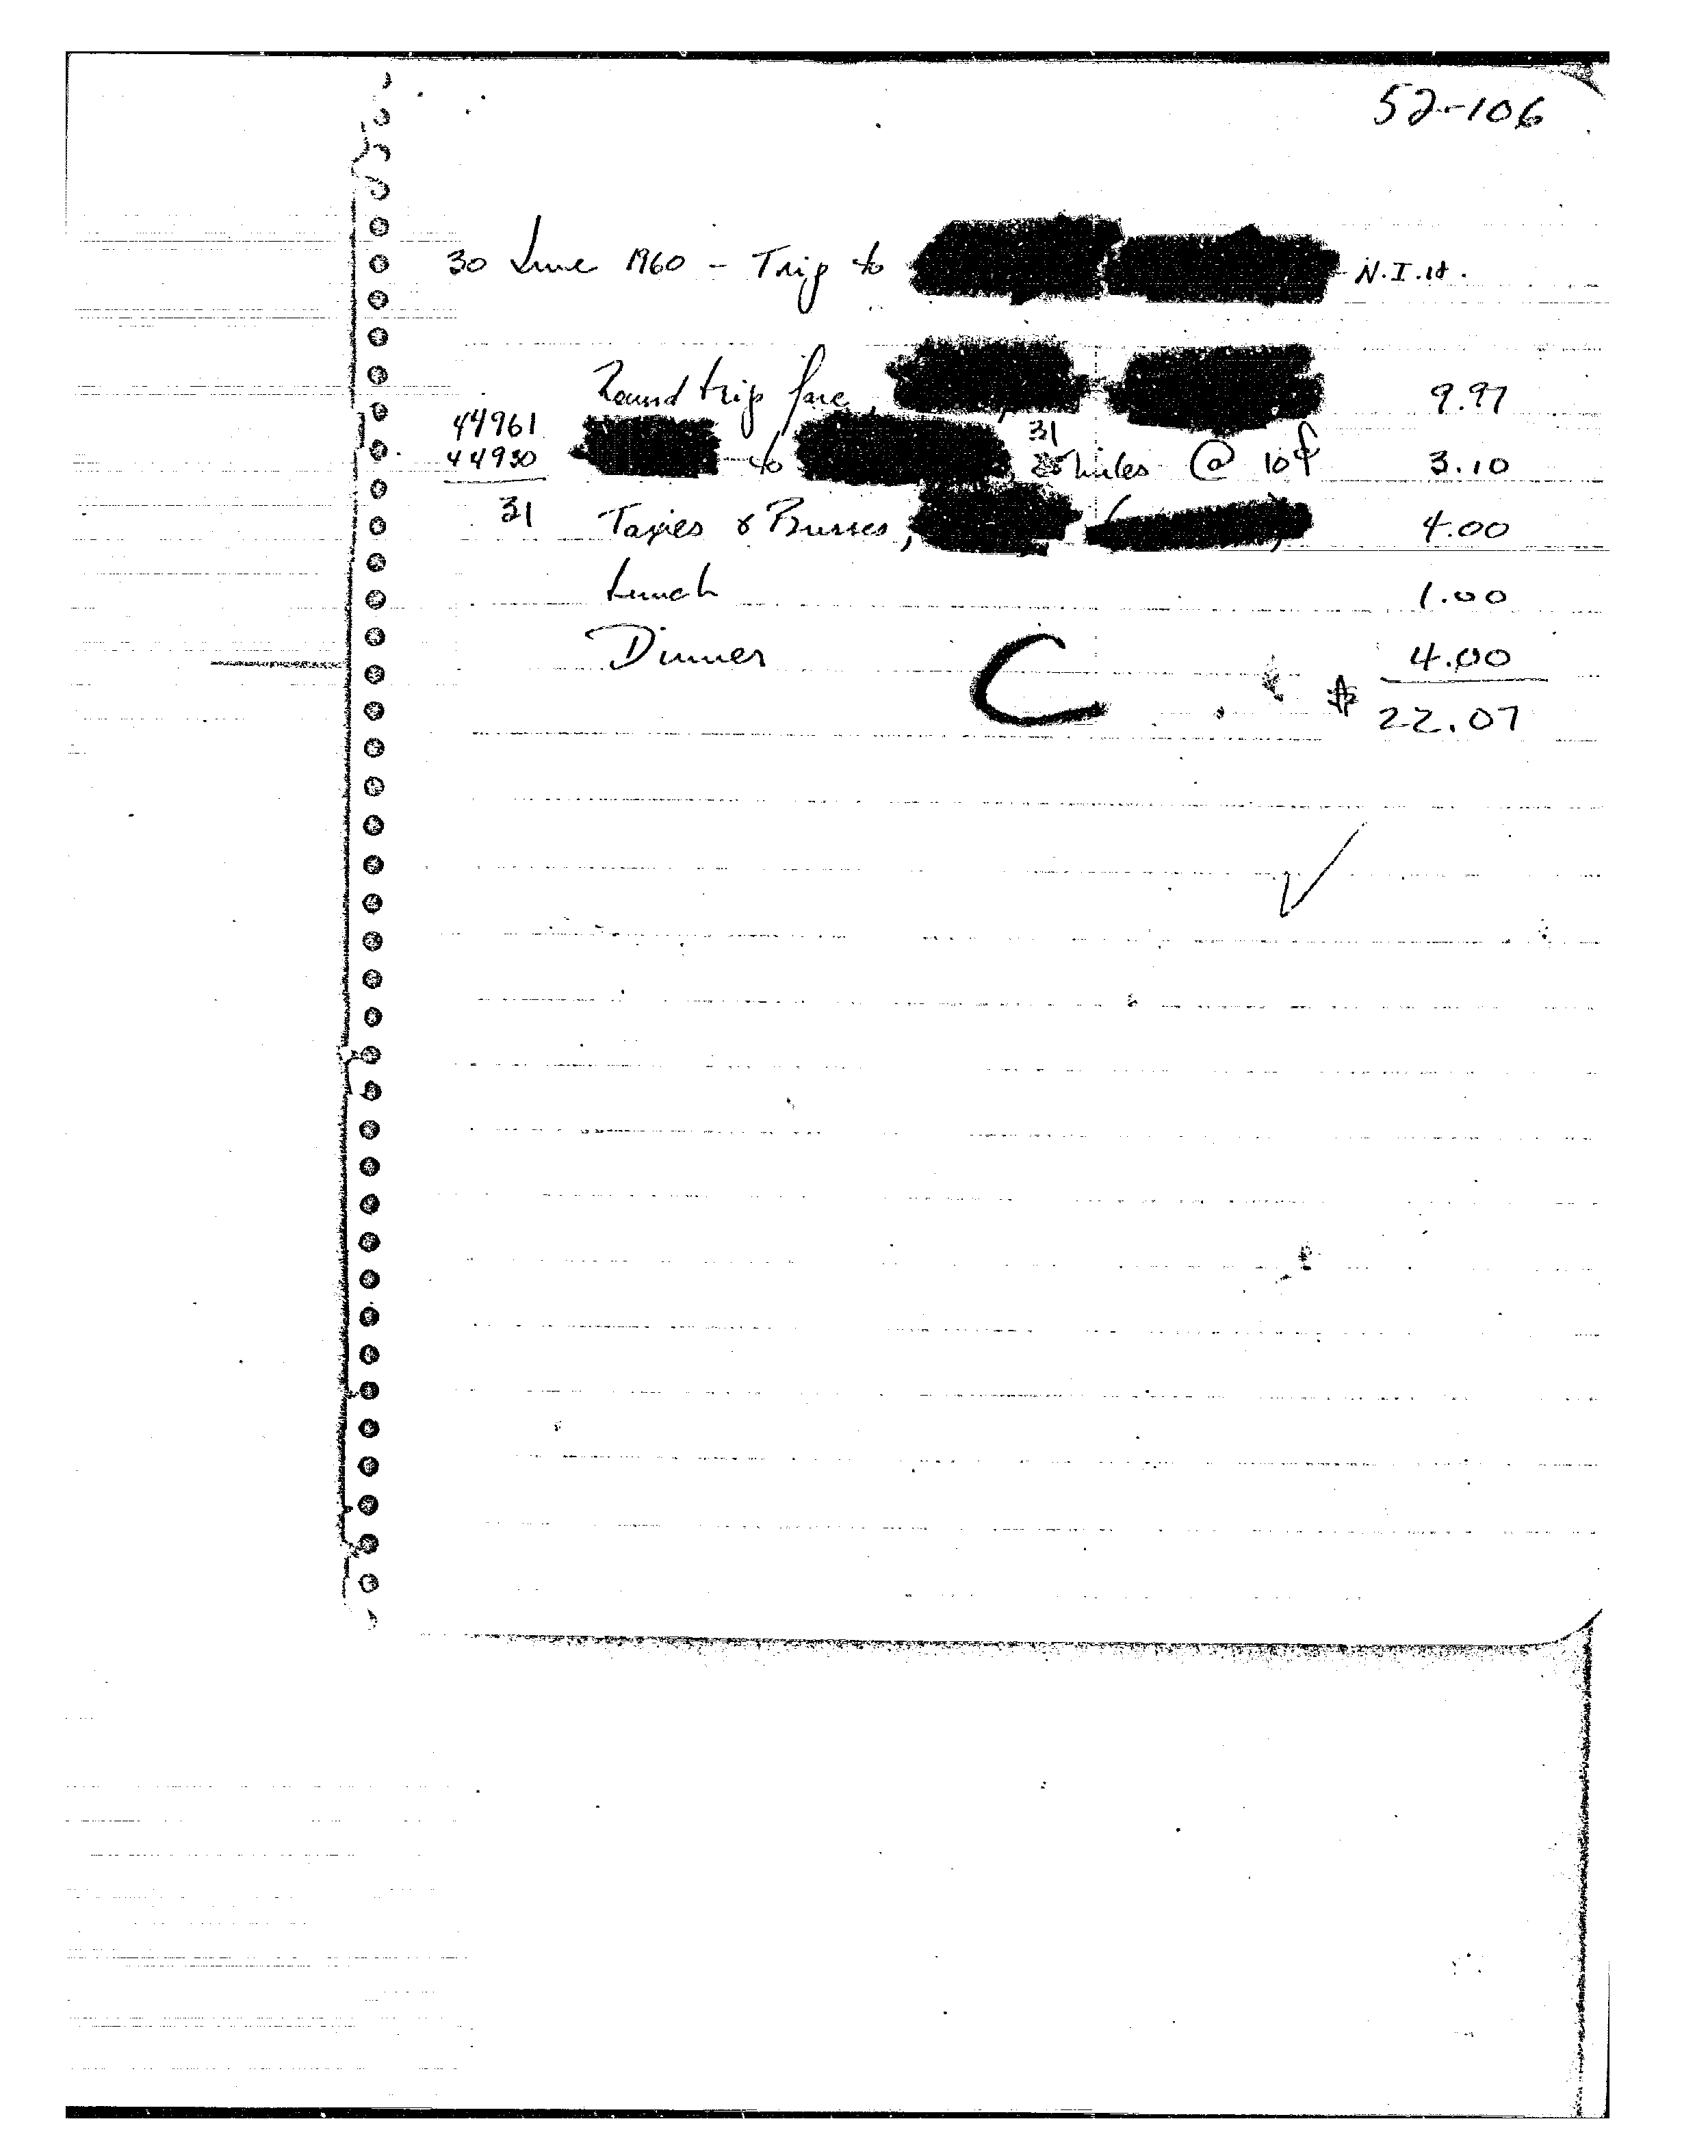 52-106
30 June 1960 - Trip to N.I.H.
Round trip fare, 9.97
44961
44930 to 31 miles @ 10¢ 3.10
31 Taxies & Busses, 4.00
Lunch 1.00
Dinner 4.00
C $ 22.07